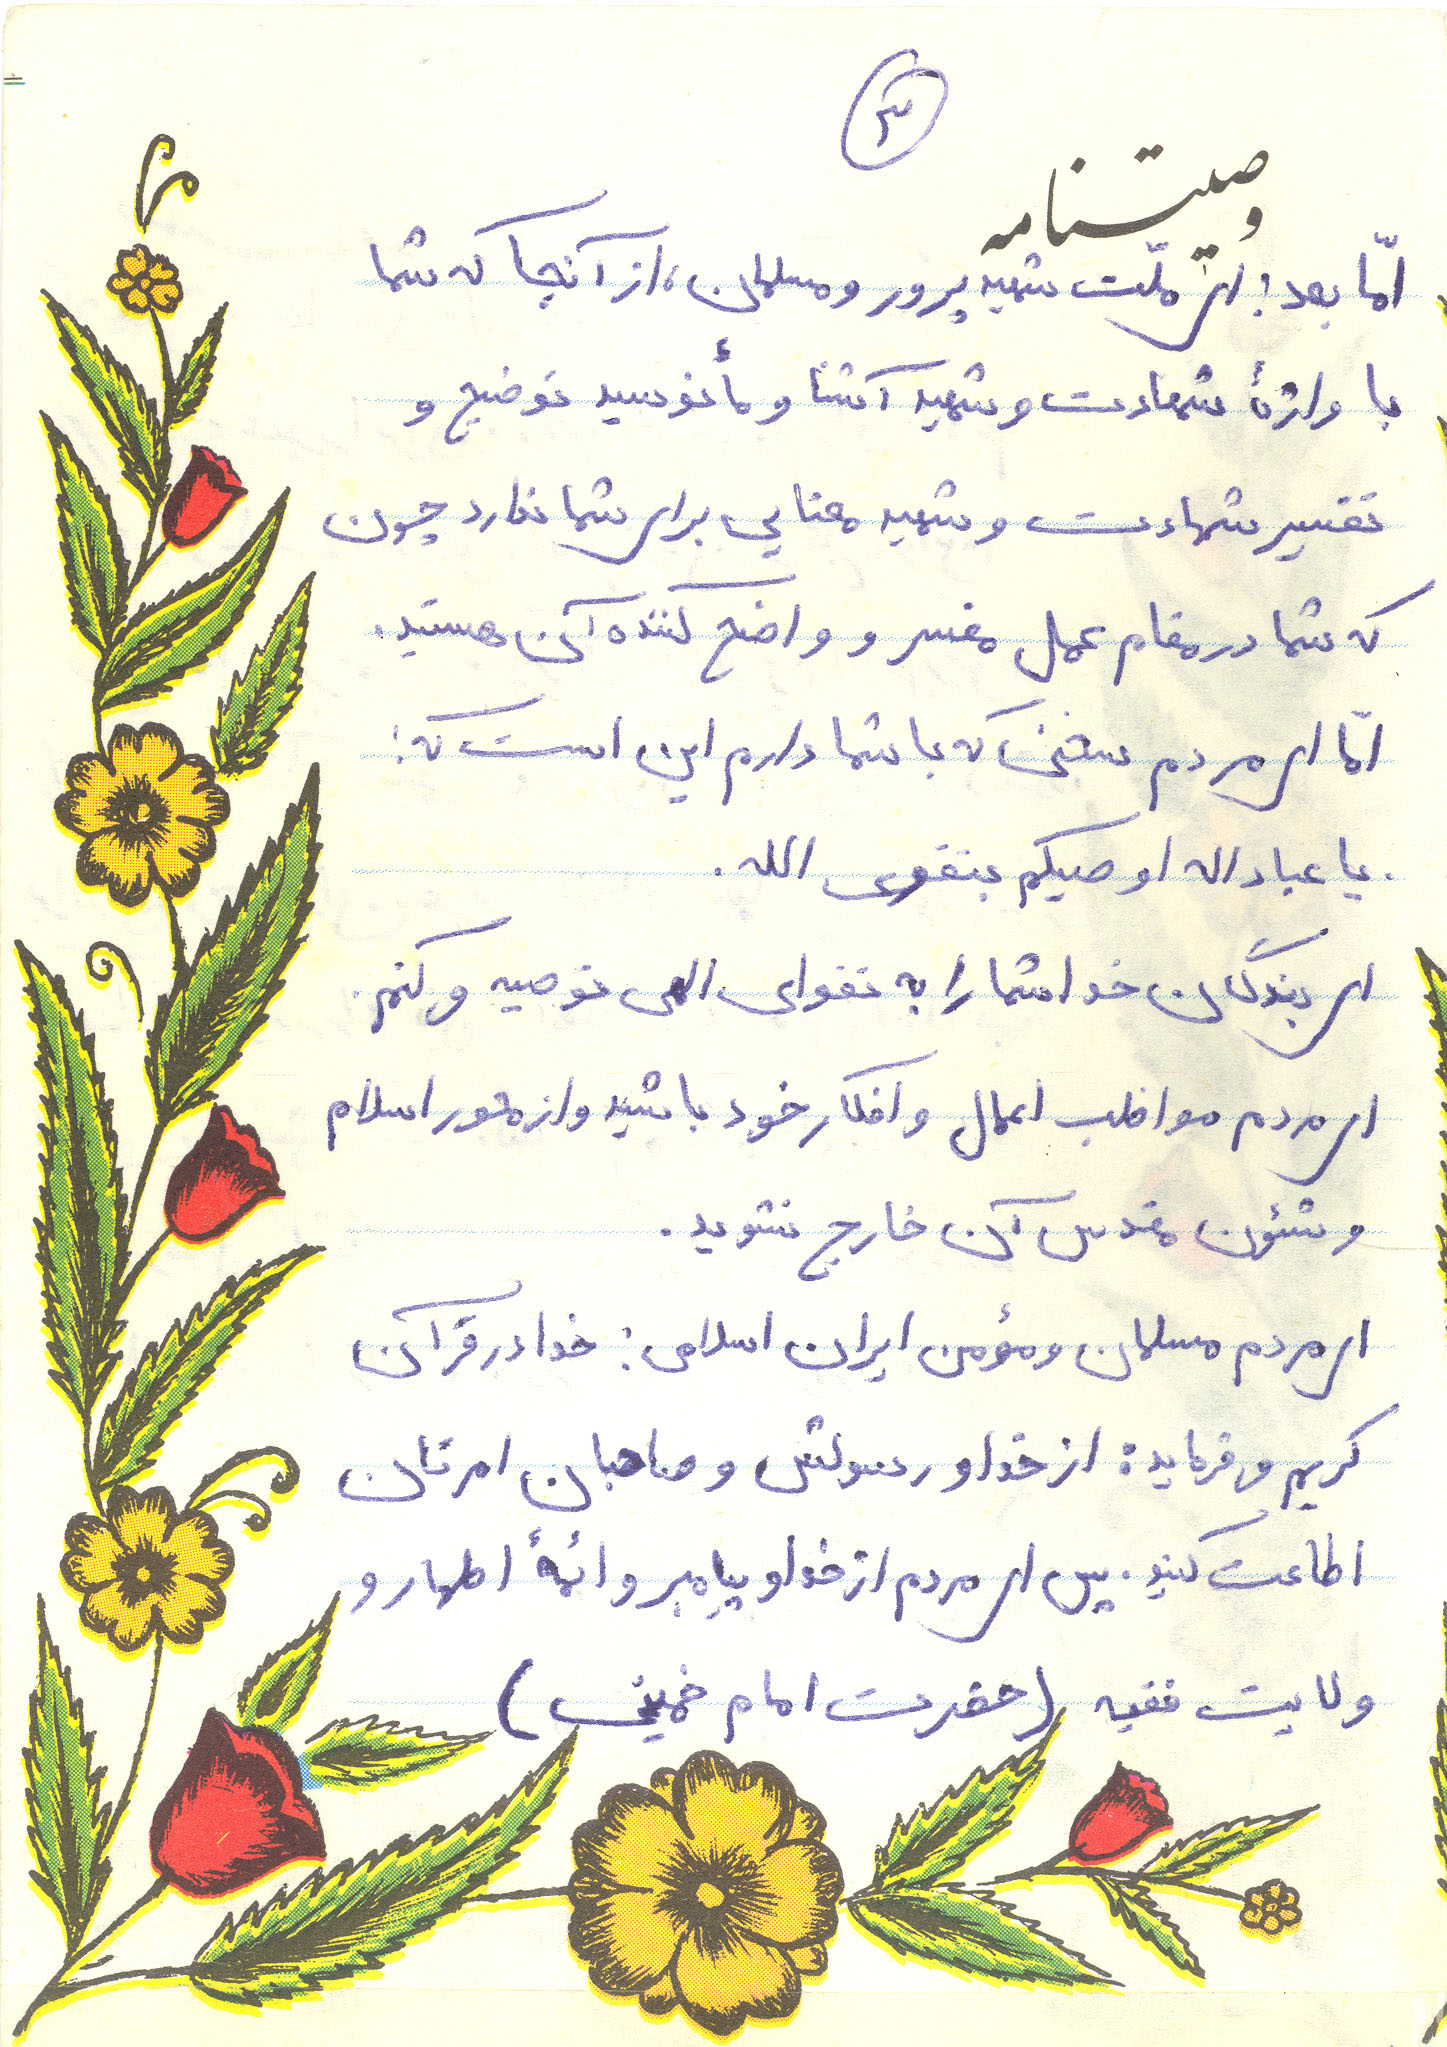 ۳
وصیتنامه
امّا بعد؛ ای ملّت شهید پرور و مسلمان، از آنجا که شما
با واژهٔ شهادت و شهید آشنا و مأنوسید توضیح و
تفسیر شهادت و شهید معنایی برای شما ندارد چون
که شما در مقام عمل مفسر و واضح کننده آن هستید.
امّا ای مردم سخنی که با شما دارم این است که:
. یا عباد الله اوصیکم بتقوی الله .
ای بندگان خدا شما را به تقوای الهی توصیه می کنم.
ای مردم مواظب اعمال و افکار خود باشید و از محور اسلام
و شئون مقدس آن خارج نشوید.
ای مردم مسلمان و مؤمن ایران اسلامی: خدا در قرآن
کریم می فرماید: از خدا و رسولش و صاحبان امرتان
اطاعت کنید. پس ای مردم از خدا و پیامبر و ائمهٔ اطهار و
ولایت فقیه (حضرت امام خمینی)